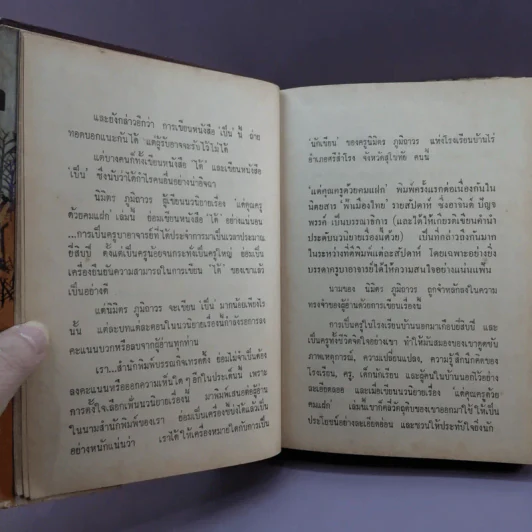 และยังกล่าวอีกว่า การเขียนหนังสือ 'เป็น' นี้ ถ่าย
ทอดบอกแนะกันได้ แต่ผู้รับอาจจะรับไว้ไม่ได้
แต่บางคนก็ทั้งเขียนหนังสือ 'ได้' และเขียนหนังสือ
'เป็น' ซึ่งนับว่าได้กำไรคนอื่นอย่างน่าอิจฉา
นิมิตร ภูมิถาวร ผู้เขียนนวนิยายเรื่อง 'แด่คุณครู
ด้วยคมแฝก' เล่มนี้ ย่อมเขียนหนังสือ 'ได้' อย่างแน่นอน
...การเป็นครูบาอาจารย์ที่ได้ประจำการมาเป็นเวลาประมาณ
ยี่สิบปี ตั้งแต่เป็นครูน้อยจนกระทั่งเป็นครูใหญ่ ย่อมเป็น
เครื่องยืนยันความสามารถในการเขียน 'ได้' ของเขาแล้ว
เป็นอย่างดี
แต่นิมิตร ภูมิถาวร จะเขียน 'เป็น' มากน้อยเพียงไร
นั้น แต่ละบทแต่ละตอนในนวนิยายเรื่องนี้กำลังรอการลง
คะแนนบวกหรือลบจากผู้อ่านทุกท่าน
เรา...สำนักพิมพ์บรรณกิจเทรดดิ้ง ย่อมไม่จำเป็นต้อง
ลงคะแนนหรือออกความเห็นใด ๆ อีกในประเด็นนี้ เพราะ
การตั้งใจเลือกเฟ้นนวนิยายเรื่องนี้ มาพิมพ์เสนอต่อผู้อ่าน
ในนามสำนักพิมพ์ของเรา ย่อมเป็นเครื่องชี้บ่งได้แล้วเป็น
อย่างหนักแน่นว่า เราได้ให้เครื่องหมายใดกับการเป็น
'นักเขียน' ของครูนิมิตร ภูมิถาวร แห่งโรงเรียนบ้านไร่
อำเภอศรีสำโรง จังหวัดสุโขทัย คนนี้
'แด่คุณครูด้วยคมแฝก' พิมพ์ครั้งแรกต่อเนื่องกันใน
นิตยสาร 'ฟ้าเมืองไทย' รายสัปดาห์ ซึ่งอาจินต์ ปัญจ
พรรค์ เป็นบรรณาธิการ (และได้ให้เกียรติเขียนคำนำ
ประดับนวนิยายเรื่องนี้ด้วย) เป็นที่กล่าวถึงกันมาก
ในระหว่างที่ตีพิมพ์แต่ละสัปดาห์ โดยเฉพาะอย่างยิ่ง
บรรดาครูบาอาจารย์ได้ให้ความสนใจอย่างแน่นแฟ้น
นามของ นิมิตร ภูมิถาวร ถูกจำหลักลงในความ
ทรงจำของผู้อ่านด้วยการเขียนเรื่องนี้
การเป็นครูในโรงเรียนบ้านนอกมาเกือบยี่สิบปี และ
เป็นครูทั้งชีวิตจิตใจอย่างเขา ทำให้หินสมองของเขาดูดซับ
ภาพเหตุการณ์, ความเปลี่ยนแปลง, ความรู้สึกนึกคิดของ
โรงเรียน, ครู, เด็กนักเรียน และผู้คนในบ้านนอกไว้อย่าง
ละเอียดลออ และเมื่อเขียนนวนิยายเรื่อง แด่คุณครูด้วย
คมแฝก เล่มนี้เขาก็คลี่วัตถุดิบของเขาออกมาใช้ ให้เป็น
ประโยชน์อย่างละเอียดลออ และชวนให้ประทับใจยิ่งนัก